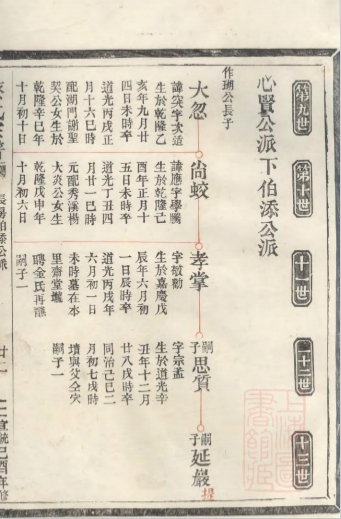 第九世
第十世
十一世
十二世
十三世
心賢公派下伯添公派
作瑚公長子
大忽
諱突字次造
生於乾隆乙
亥年九月廿
四日未時卒
道光丙戌正
月十六巳時
配湖門謝聖
契公女生於
乾隆辛巳年
十月初十日
尙蛟
諱應字學騰
生於乾隆己
酉年正月十
五日未時卒
道光丁丑四
月廿一巳時
元配秀溪楊
大炎公女生
乾隆戊申年
十月初六日
孝掌
字敬勳
生於嘉慶戊
辰年六月初
一日辰時卒
道光丙戌年
六月初一日
未時墓在本
里齋堂壠
聘金氏再醮
嗣子一
嗣子
思質
字宗孟
生於道光辛
丑年十二月
廿八戌時卒
同治己巳二
月初七戌時
墳與父仝穴
嗣子一
嗣子
延嚴
提
長房伯添公派
廿一
宣統己酉年修